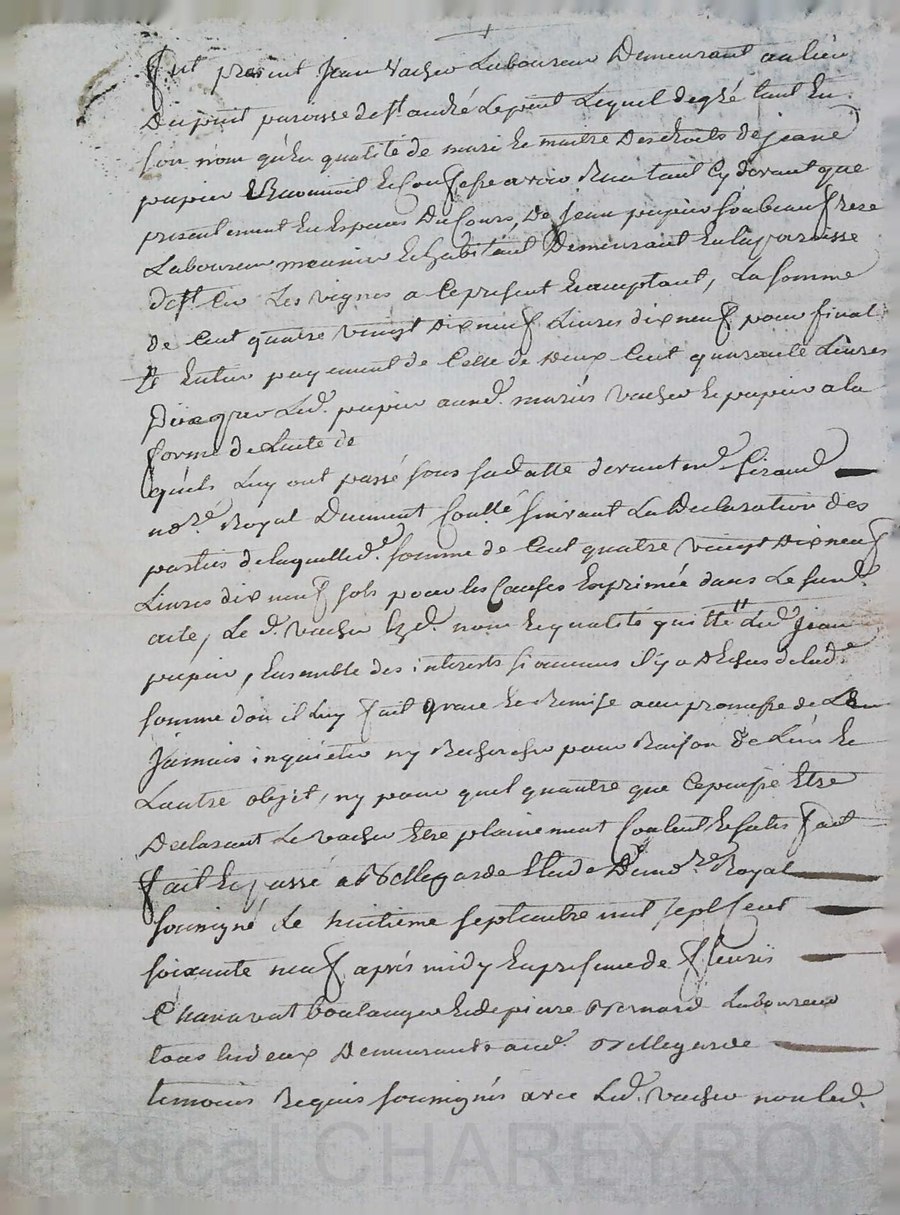 +
fut present Jean Vacher Laboureur Demeurant au lieu
Du puit paroisse de st andré Le puit Lequel de gré tant En
son nom qu'En qualité de mari Et maitre Des droits de jeane
pupier Reconnoit Et Confesse avoir Reçu tant Cy devant que
presentement En Especes Du Cours, De Jean pupier son beau frere
Laboureur meunier Et habitant Demeurant En la paroisse
de st Les vignes a Ce present Et acceptant, La somme
de Cent quatre vingt Dix neuf Livres dix neuf pour final
Et Entier payement de Celle de Deux Cent quarante Livres
Due par Led. pupier auxd. mariés Vacher Et pupier a la
forme de Lacte de
qu'ils Luy ont passé sous sa datte devant me Giraud
nore. Royal Duement Contlé suivant La Declaration des
parties de laquelled. somme de Cent quatre vingt Dix neuf
Livres dix neuf sols pour les Causes Exprimée dans Le susd.
acte, Le d. Vacher Ezd. nom Et qualité quitte Led. Jean
pupier, Ensemble des interests si aucuns il y a Dheus de lade.
somme dou il Luy fait grace Et Remise avec promesse de Len
Jamais inquieter ny Rechercher pour Raison de Lun Et
Lautre objet, ny pour quel quautre que Ce puisse Etre
Declarant Le Vacher Etre plainement Content Et satisfait
fait Et passé a Bellegarde Etude Du nore Royal
soussigné Le huitième septembre mil sept Cent
soixante neuf après midy En presence de fleuris
Chanavat boulanger Et de pierre Bernard Laboureur
tous Les deux Demeurants aud. Bellegarde
temoins Requis soussignés avec Led. Vacher non Led.
Pascal CHAREYRON